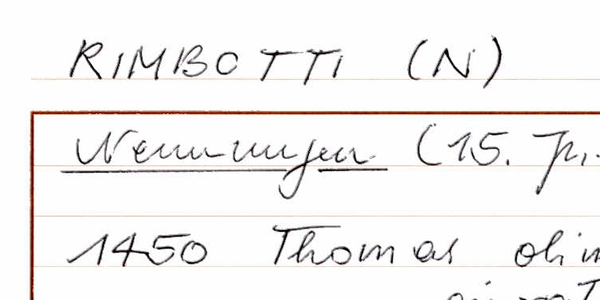 RIMBOTTI (N)
Nennungen (15. Jh.
1450 Thomas olim